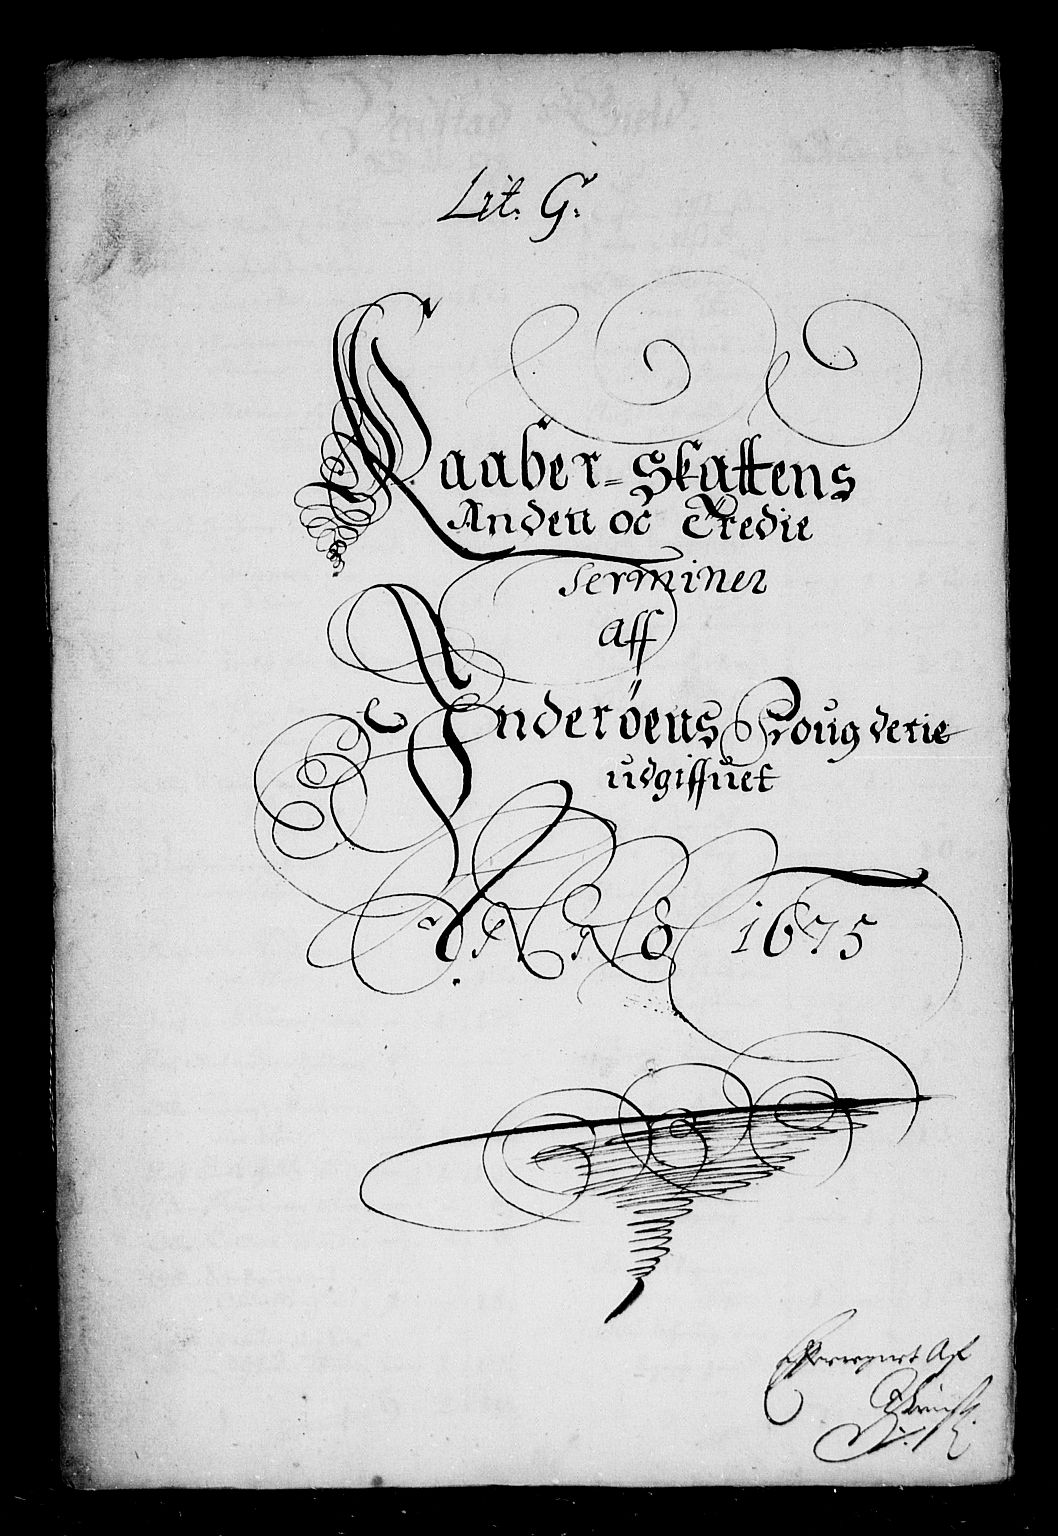 Lit. G.
Kaaber-Skattens
Anden oc Tredie
Terminer
aff
Inderöens Fougderie
udgiffuet
ANNO 1675
Efterregnet Af